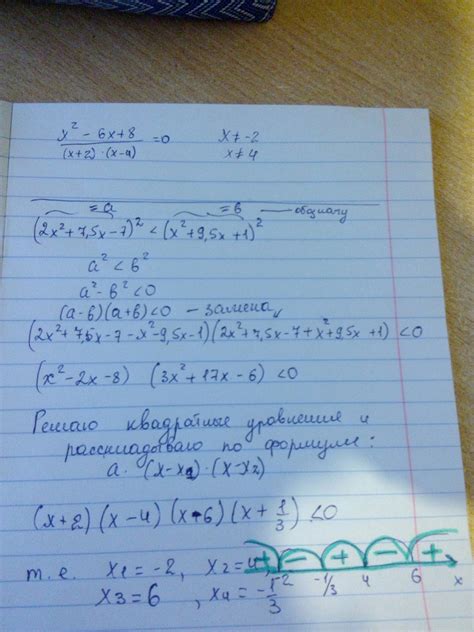 x² - 6x + 8 / (x+2)·(x-4) = 0    x ≠ -2
x ≠ 4
= a    = b — обозначу
(2x² + 7,5x - 7)² < (x² + 9,5x + 1)²
a² < b²
a² - b² < 0
(a - b)(a + b) < 0 — замена
(2x² + 7,5x - 7 - x² - 9,5x - 1)(2x² + 7,5x - 7 + x² + 9,5x + 1) < 0
(x² - 2x - 8) (3x² + 17x - 6) < 0
Решаю квадратные уравнения и
раскладываю по формуле:
a·(x - x₁)·(x - x₂)
(x + 2)(x - 4)(x - 6)(x + 1/3) < 0
+ - + - +
т.е. x1 = -2, x2 = 4,
-2 -1/3 4 6 x
x3 = 6, x4 = -1/3